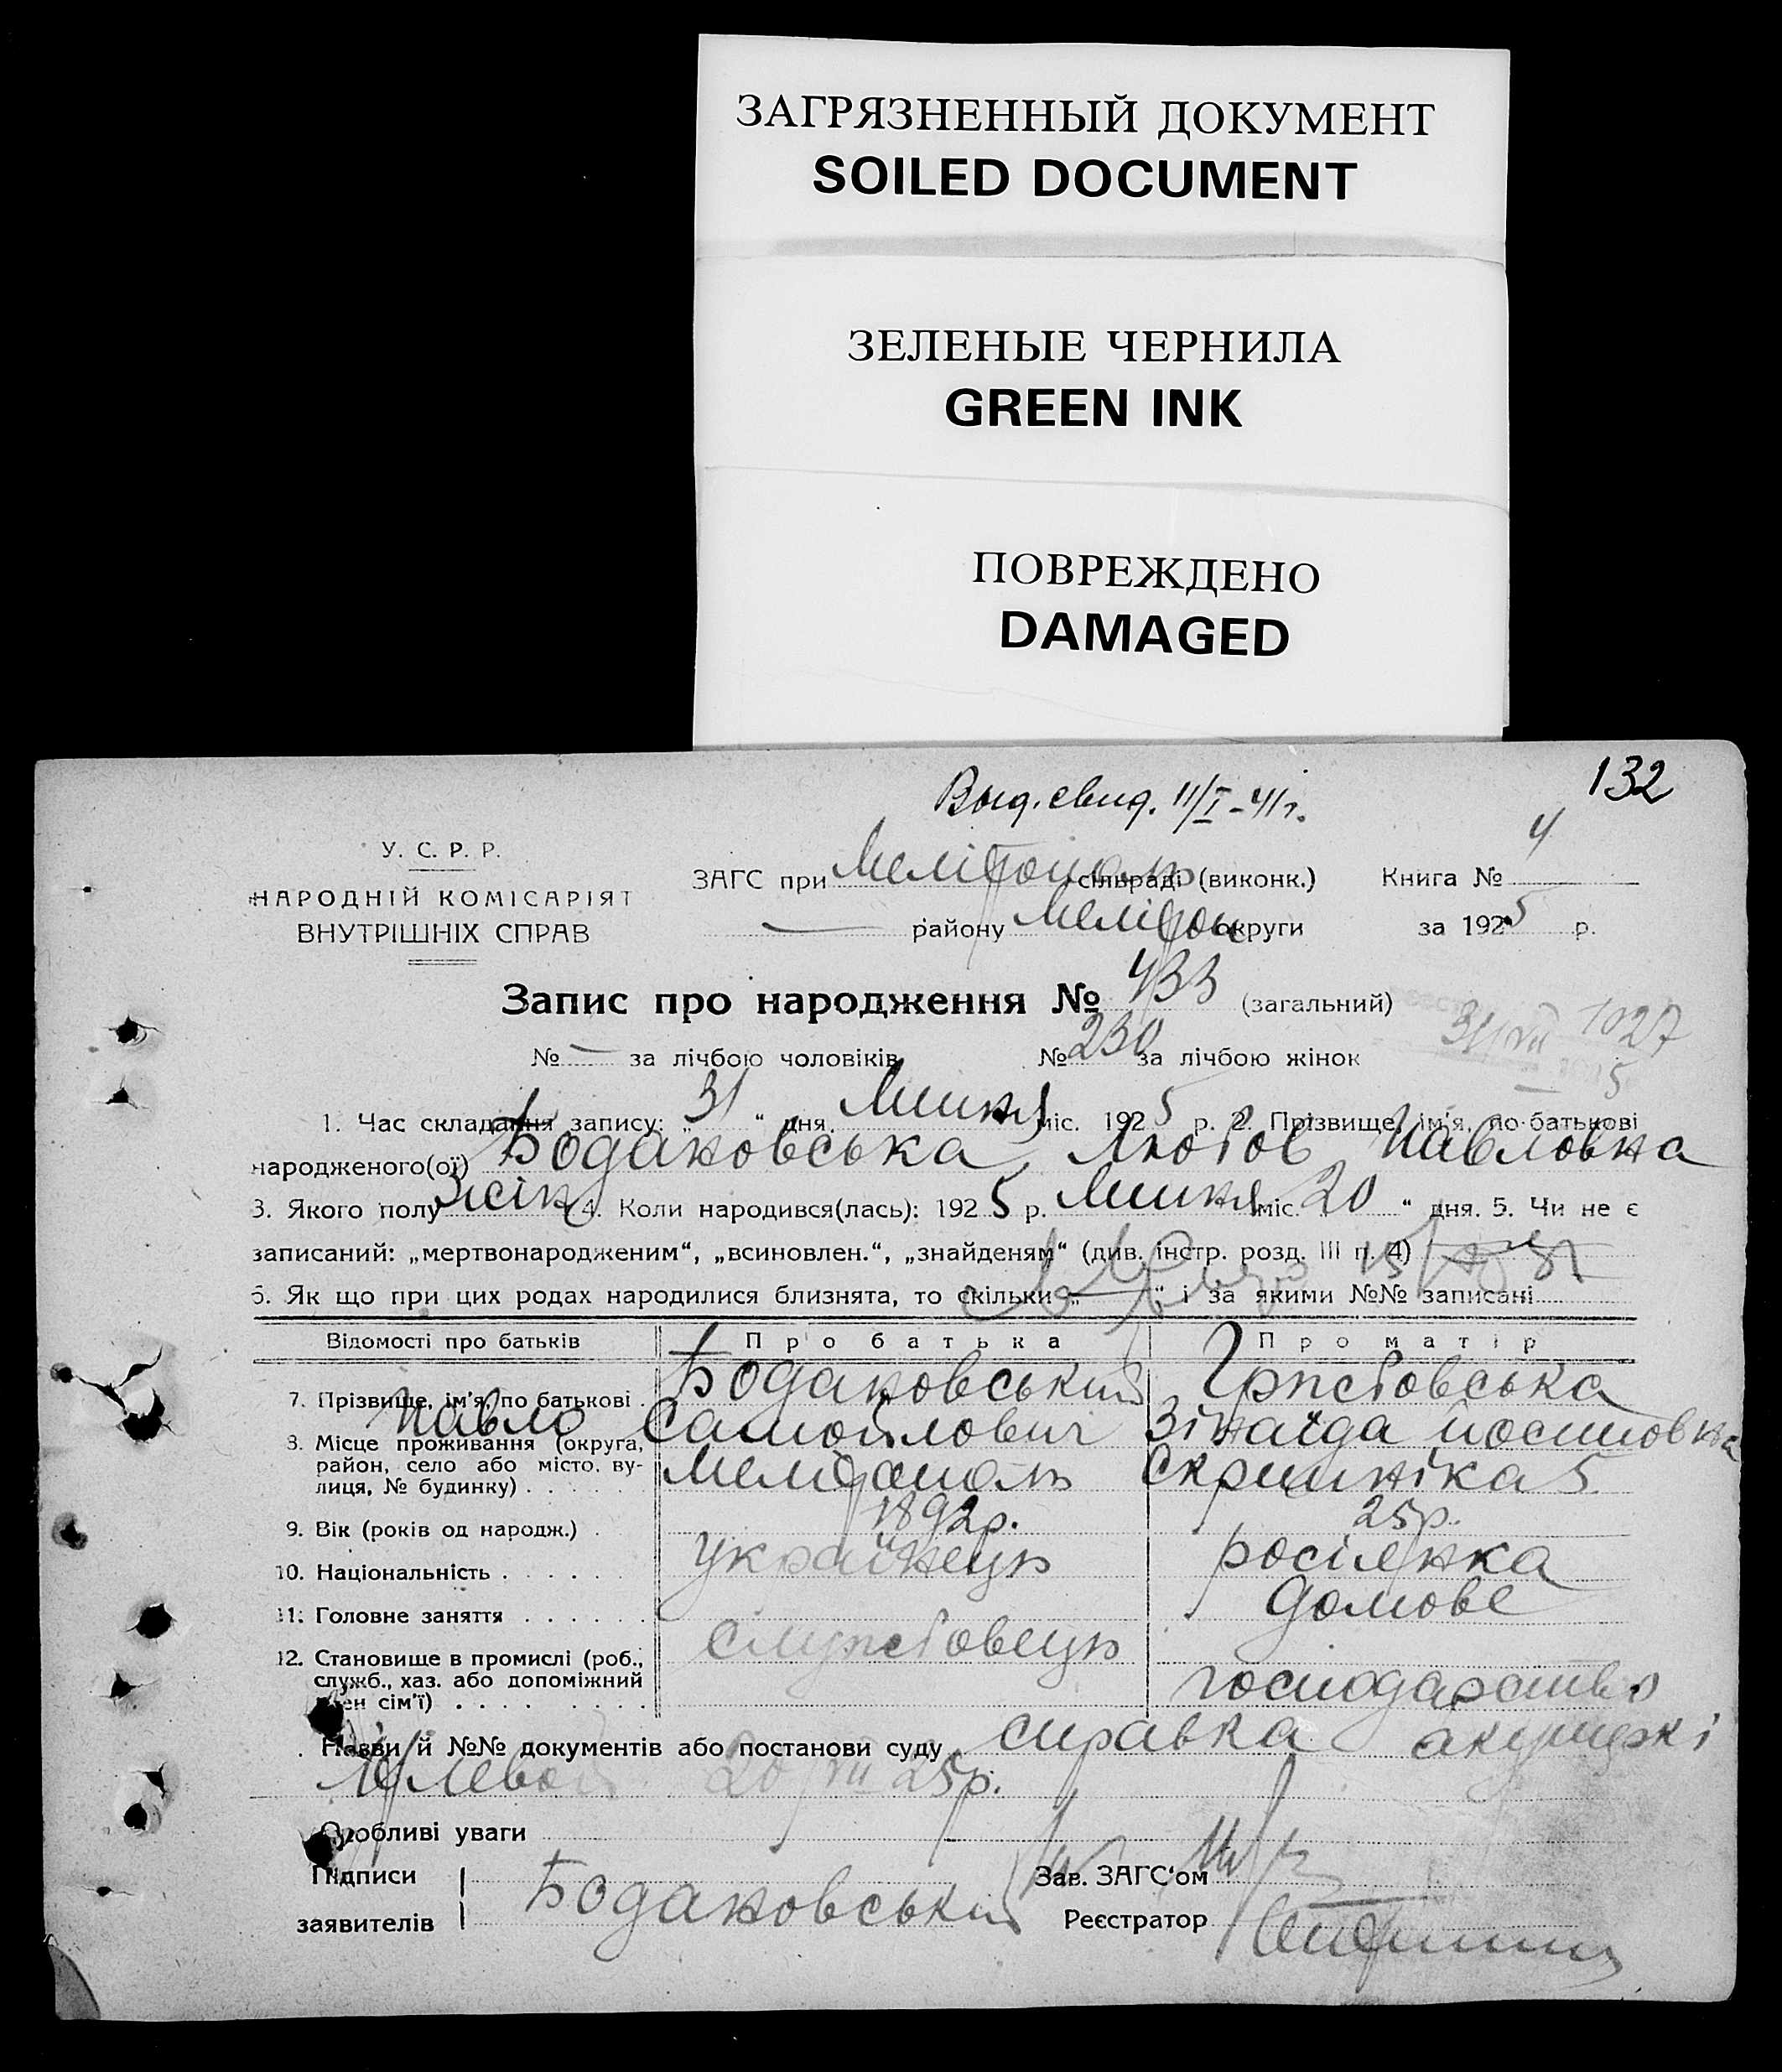 ЗАГРЯЗНЕННЫЙ ДОКУМЕНТ
SOILED DOCUMENT
ЗЕЛЕНЫЕ ЧЕРНИЛА
GREEN INK
ПОВРЕЖДЕНО
DAMAGED
132
Выд. свид. 11/I-41г.
У. С. Р. Р.
НАРОДНІЙ КОМІСАРІЯТ
ВНУТРІШНІХ СПРАВ
ЗАГС при Мелітополь сільраді (виконк.) Книга № 4
— району Меліт округи за 1925 р.
Запис про народження № 433 (загальний)
31/VII 1027
№ — за лічбою чоловіків № 230 за лічбою жінок
1. Час складання запису: „31“ дня Липня міс. 1925 р. 2. Прізвище, ім'я, по-батькові
народженого(ої) Бодаковська Любов Павловна
3. Якого полу жін 4. Коли народився(лась): 1925 р. Липня міс. 20 “ дня. 5. Чи не є
записаний: „мертвонародженим“, „всиновлен.“, „знайденям“ (див. інстр. розд. III п. 4)
6. Як що при цих родах народилися близнята, то скільки „—“ і за якими №№ записані
Відомості про батьків Про батька Про матір
7. Прізвище, ім'я, по батькові . Бодаковський
Павло Самойлович Зінаїда Йосиповна
8. Місце проживання (округа, район, село або місто, ву-
лиця, № будинку) . . . . . Мелітополь Скрипніка 5
9. Вік (років од народж.) . 1892р. 25р.
10. Національність . . . . . . українець росіянка
11. Головне заняття . . . . . . домове
12. Становище в промислі (роб., службовець
служб., хаз. або допоміжний господарство
член сім'ї) . . . . . . . . .
Назви й №№ документів або постанови суду справка акушеркі
20/VII 25р.
Особливі уваги
Підписи Зав. ЗАГС'ом
заявителів Бодаковський Реєстратор